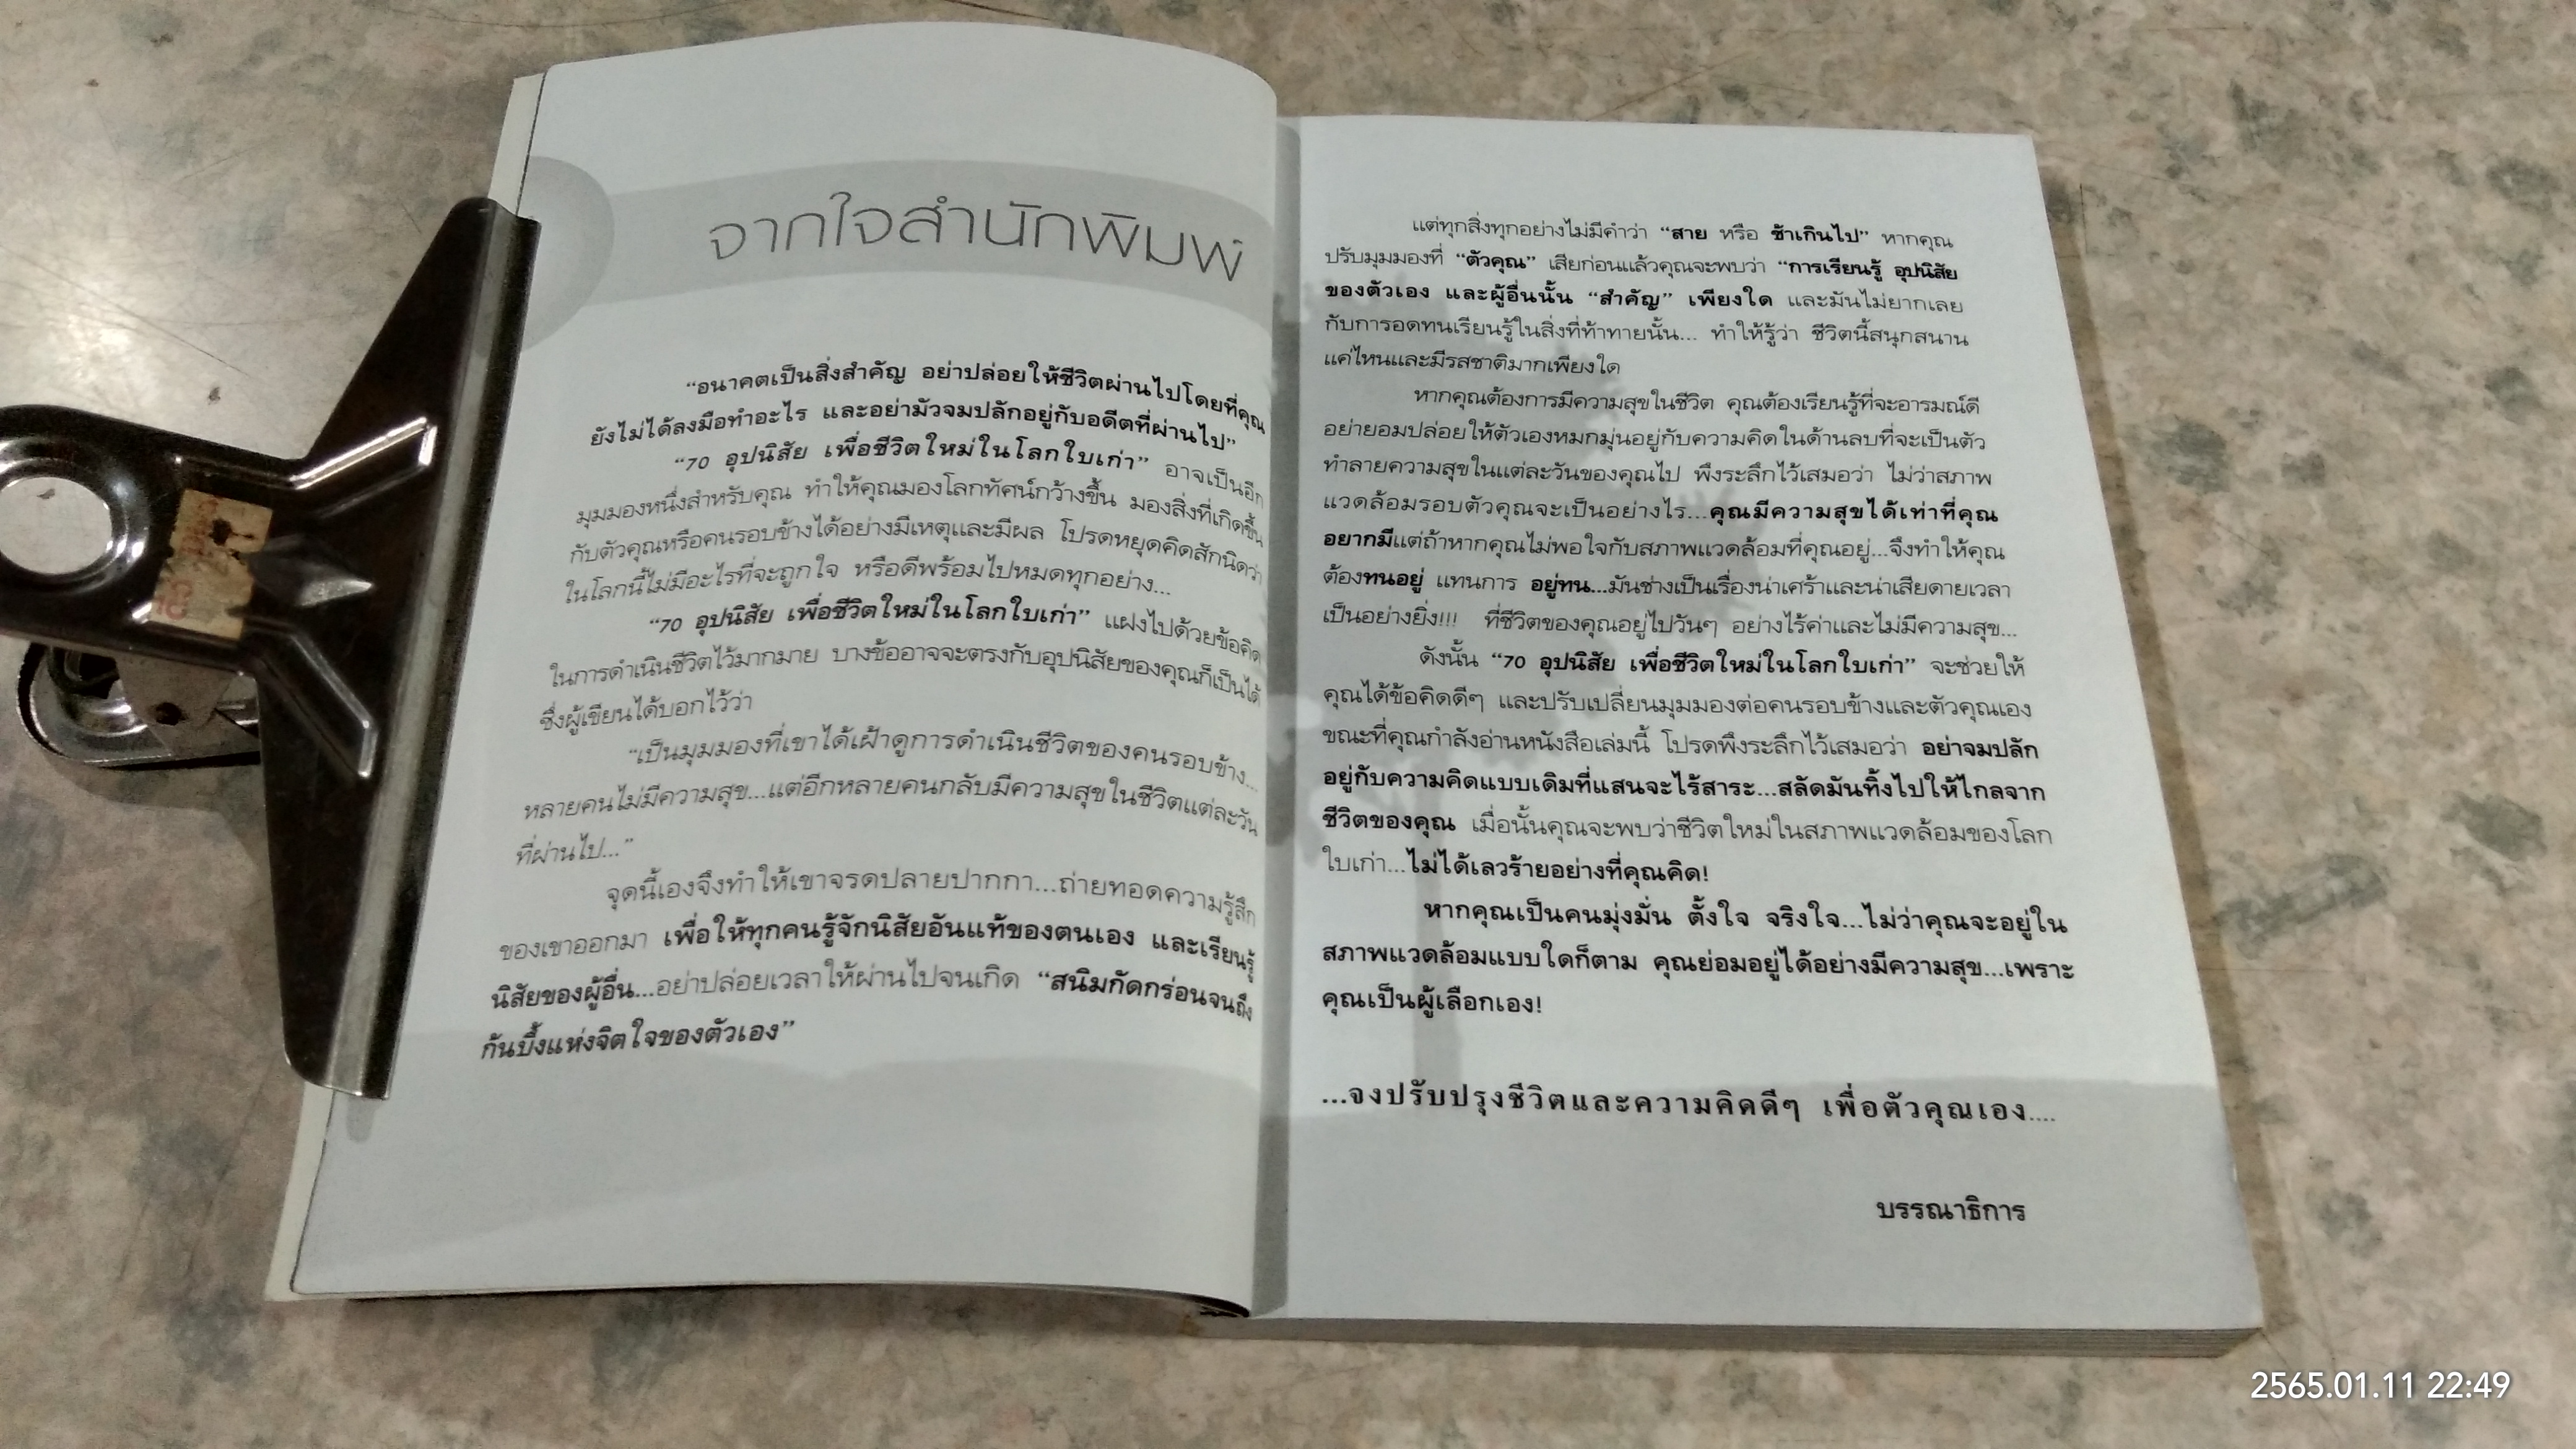 จากใจสำนักพิมพ์
“อนาคตเป็นสิ่งสำคัญ อย่าปล่อยให้ชีวิตผ่านไปโดยที่คุณ
ยังไม่ได้ลงมือทำอะไร และอย่ามัวจมปลักอยู่กับอดีตที่ผ่านไป”
“70 อุปนิสัย เพื่อชีวิตใหม่ในโลกใบเก่า” อาจเป็นอีก
มุมมองหนึ่งสำหรับคุณ ทำให้คุณมองโลกทัศน์กว้างขึ้น มองสิ่งที่เกิดขึ้น
กับตัวคุณหรือคนรอบข้างได้อย่างมีเหตุและมีผล โปรดหยุดคิดสักนิดว่า
ในโลกนี้ไม่มีอะไรที่จะถูกใจ หรือดีพร้อมไปหมดทุกอย่าง...
“70 อุปนิสัย เพื่อชีวิตใหม่ในโลกใบเก่า” แฝงไปด้วยข้อคิด
ในการดำเนินชีวิตไว้มากมาย บางข้ออาจจะตรงกับอุปนิสัยของคุณก็เป็นได้
ซึ่งผู้เขียนได้บอกไว้ว่า
“เป็นมุมมองที่เขาได้เฝ้าดูการดำเนินชีวิตของคนรอบข้าง...
หลายคนไม่มีความสุข...แต่อีกหลายคนกลับมีความสุขในชีวิตแต่ละวัน
ที่ผ่านไป...”
จุดนี้เองจึงทำให้เขาจรดปลายปากกา...ถ่ายทอดความรู้สึก
ของเขาออกมา เพื่อให้ทุกคนรู้จักนิสัยอันแท้ของตนเอง และเรียนรู้
นิสัยของผู้อื่น...อย่าปล่อยเวลาให้ผ่านไปจนเกิด “สนิมกัดกร่อนจนถึง
ก้นบึ้งแห่งจิตใจของตัวเอง”
แต่ทุกสิ่งทุกอย่างไม่มีคำว่า “สาย หรือ ช้าเกินไป” หากคุณ
ปรับมุมมองที่ “ตัวคุณ” เสียก่อนแล้วคุณจะพบว่า “การเรียนรู้ อุปนิสัย
ของตัวเอง และผู้อื่นนั้น “สำคัญ” เพียงใด และมันไม่ยากเลย
กับการอดทนเรียนรู้ในสิ่งที่ท้าทายนั้น... ทำให้รู้ว่า ชีวิตนี้สนุกสนาน
แค่ไหนและมีรสชาติมากเพียงใด
หากคุณต้องการมีความสุขในชีวิต คุณต้องเรียนรู้ที่จะอารมณ์ดี
อย่ายอมปล่อยให้ตัวเองหมกมุ่นอยู่กับความคิดในด้านลบที่จะเป็นตัว
ทำลายความสุขในแต่ละวันของคุณไป พึงระลึกไว้เสมอว่า ไม่ว่าสภาพ
แวดล้อมรอบตัวคุณจะเป็นอย่างไร...คุณมีความสุขได้เท่าที่คุณ
อยากมีแต่ถ้าหากคุณไม่พอใจกับสภาพแวดล้อมที่คุณอยู่...จึงทำให้คุณ
ต้องทนอยู่ แทนการ อยู่ทน...มันช่างเป็นเรื่องน่าเศร้าและน่าเสียดายเวลา
เป็นอย่างยิ่ง!!! ที่ชีวิตของคุณอยู่ไปวันๆ อย่างไร้ค่าและไม่มีความสุข...
ดังนั้น “70 อุปนิสัย เพื่อชีวิตใหม่ในโลกใบเก่า” จะช่วยให้
คุณได้ข้อคิดดีๆ และปรับเปลี่ยนมุมมองต่อคนรอบข้างและตัวคุณเอง
ขณะที่คุณกำลังอ่านหนังสือเล่มนี้ โปรดพึงระลึกไว้เสมอว่า อย่าจมปลัก
อยู่กับความคิดแบบเดิมที่แสนจะไร้สาระ...สลัดมันทิ้งไปให้ไกลจาก
ชีวิตของคุณ เมื่อนั้นคุณจะพบว่าชีวิตใหม่ในสภาพแวดล้อมของโลก
ใบเก่า...ไม่ได้เลวร้ายอย่างที่คุณคิด!
หากคุณเป็นคนมุ่งมั่น ตั้งใจ จริงใจ...ไม่ว่าคุณจะอยู่ใน
สภาพแวดล้อมแบบใดก็ตาม คุณย่อมอยู่ได้อย่างมีความสุข...เพราะ
คุณเป็นผู้เลือกเอง!
...จงปรับปรุงชีวิตและความคิดดีๆ เพื่อตัวคุณเอง....
บรรณาธิการ
2565.01.11 22:49